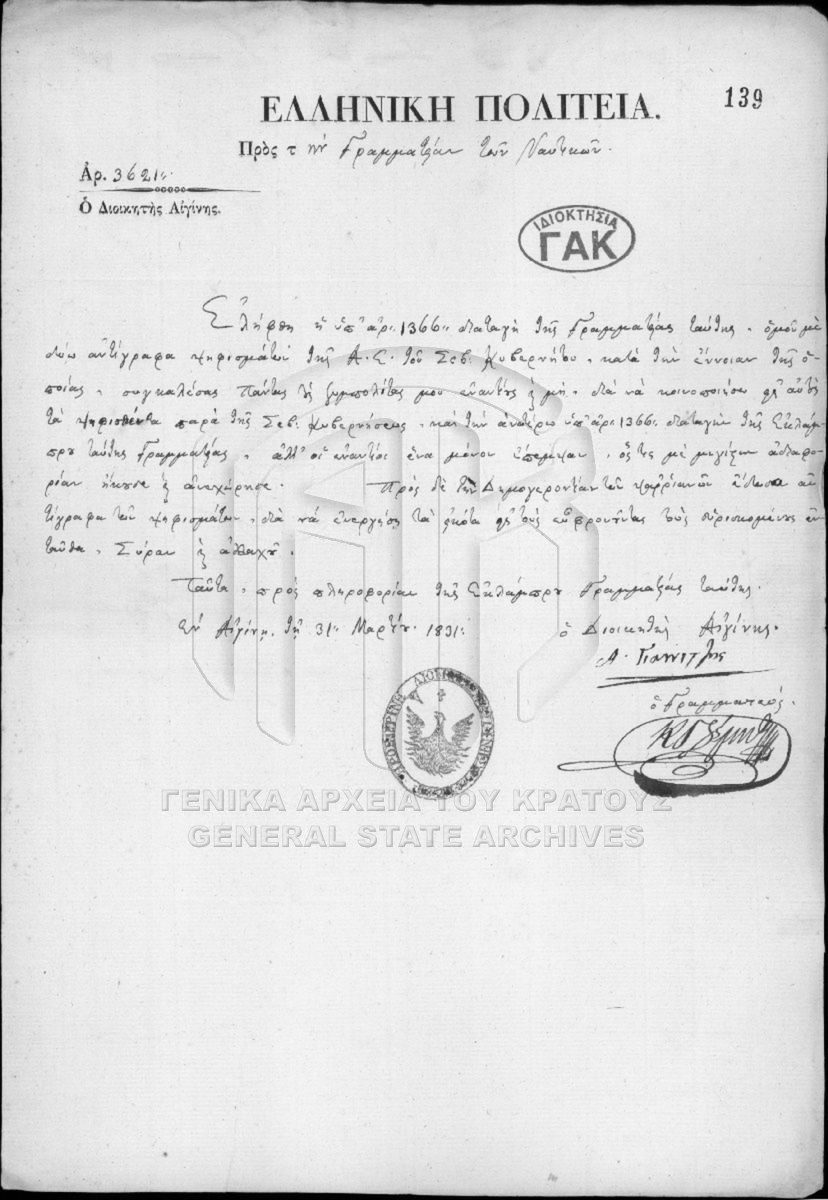 139
ΕΛΛΗΝΙΚΗ ΠΟΛΙΤΕΙΑ.
Πρὸς τ ὴν Γραμματείαν τῶν Ναυτικῶν.
Ἀρ. 3621
Ὁ Διοικητὴς Αἰγίνης.
ΙΔΙΟΚΤΗΣΙΑ
ΓΑΚ
Ἐλήφθη ἡ ὑπ' ἀρ. 1366 διαταγὴ τῆς Γραμματείας ταύτης, ὁμοῦ μὲ
δύω ἀντίγραφα ψηφισμάτων τῆς Α. Ε. τοῦ Σεβ. Κυβερνήτου, κατὰ τὴν ἔννοιαν τῆς ὁ-
ποίας, συγκαλέσας πάντας τοὺς συμπολίτας μου διὰ νὰ κοινοποιήσω εἰς αὐτοὺς
τὰ ψηφισθέντα παρὰ τῆς Σεβ. Κυβερνήσεως, καὶ τὴν ἀνωτέρω ὑπ' ἀρ. 1366 διαταγὴν τῆς Ἐκλάμ-
πρου ταύτης Γραμματείας, ἀλλ' οἱ ἕνα μόνον ἔπεμψαν, ὅστις μὲ μεγίστην ἀδιαφο-
ρίαν ἤκουσε καὶ ἀνεχώρησε. Πρὸς δὲ τὴν Δημογεροντίαν τῶν Ψαρριανῶν ἔδωσα ἀν-
τίγραφα τῶν ψηφισμάτων, διὰ νὰ ἐνεργήσῃ τὰ εἰκότα εἰς τοὺς εὑρισκομένους ἐν-
ταῦθα, Σύραν καὶ ἀλλαχοῦ.
Ταῦτα, πρὸς πληροφορίαν τῆς Ἐκλάμπρου Γραμματείας ταύτης.
Ἐν Αἰγίνῃ τῇ 31 Μαρτίου 1831
ὁ Διοικητὴς Αἰγίνης.
Α. Γιαννίτζης
ὁ Γραμματεύς.
ΓΕΝΙΚΑ ΑΡΧΕΙΑ ΤΟΥ ΚΡΑΤΟΥΣ
GENERAL STATE ARCHIVES